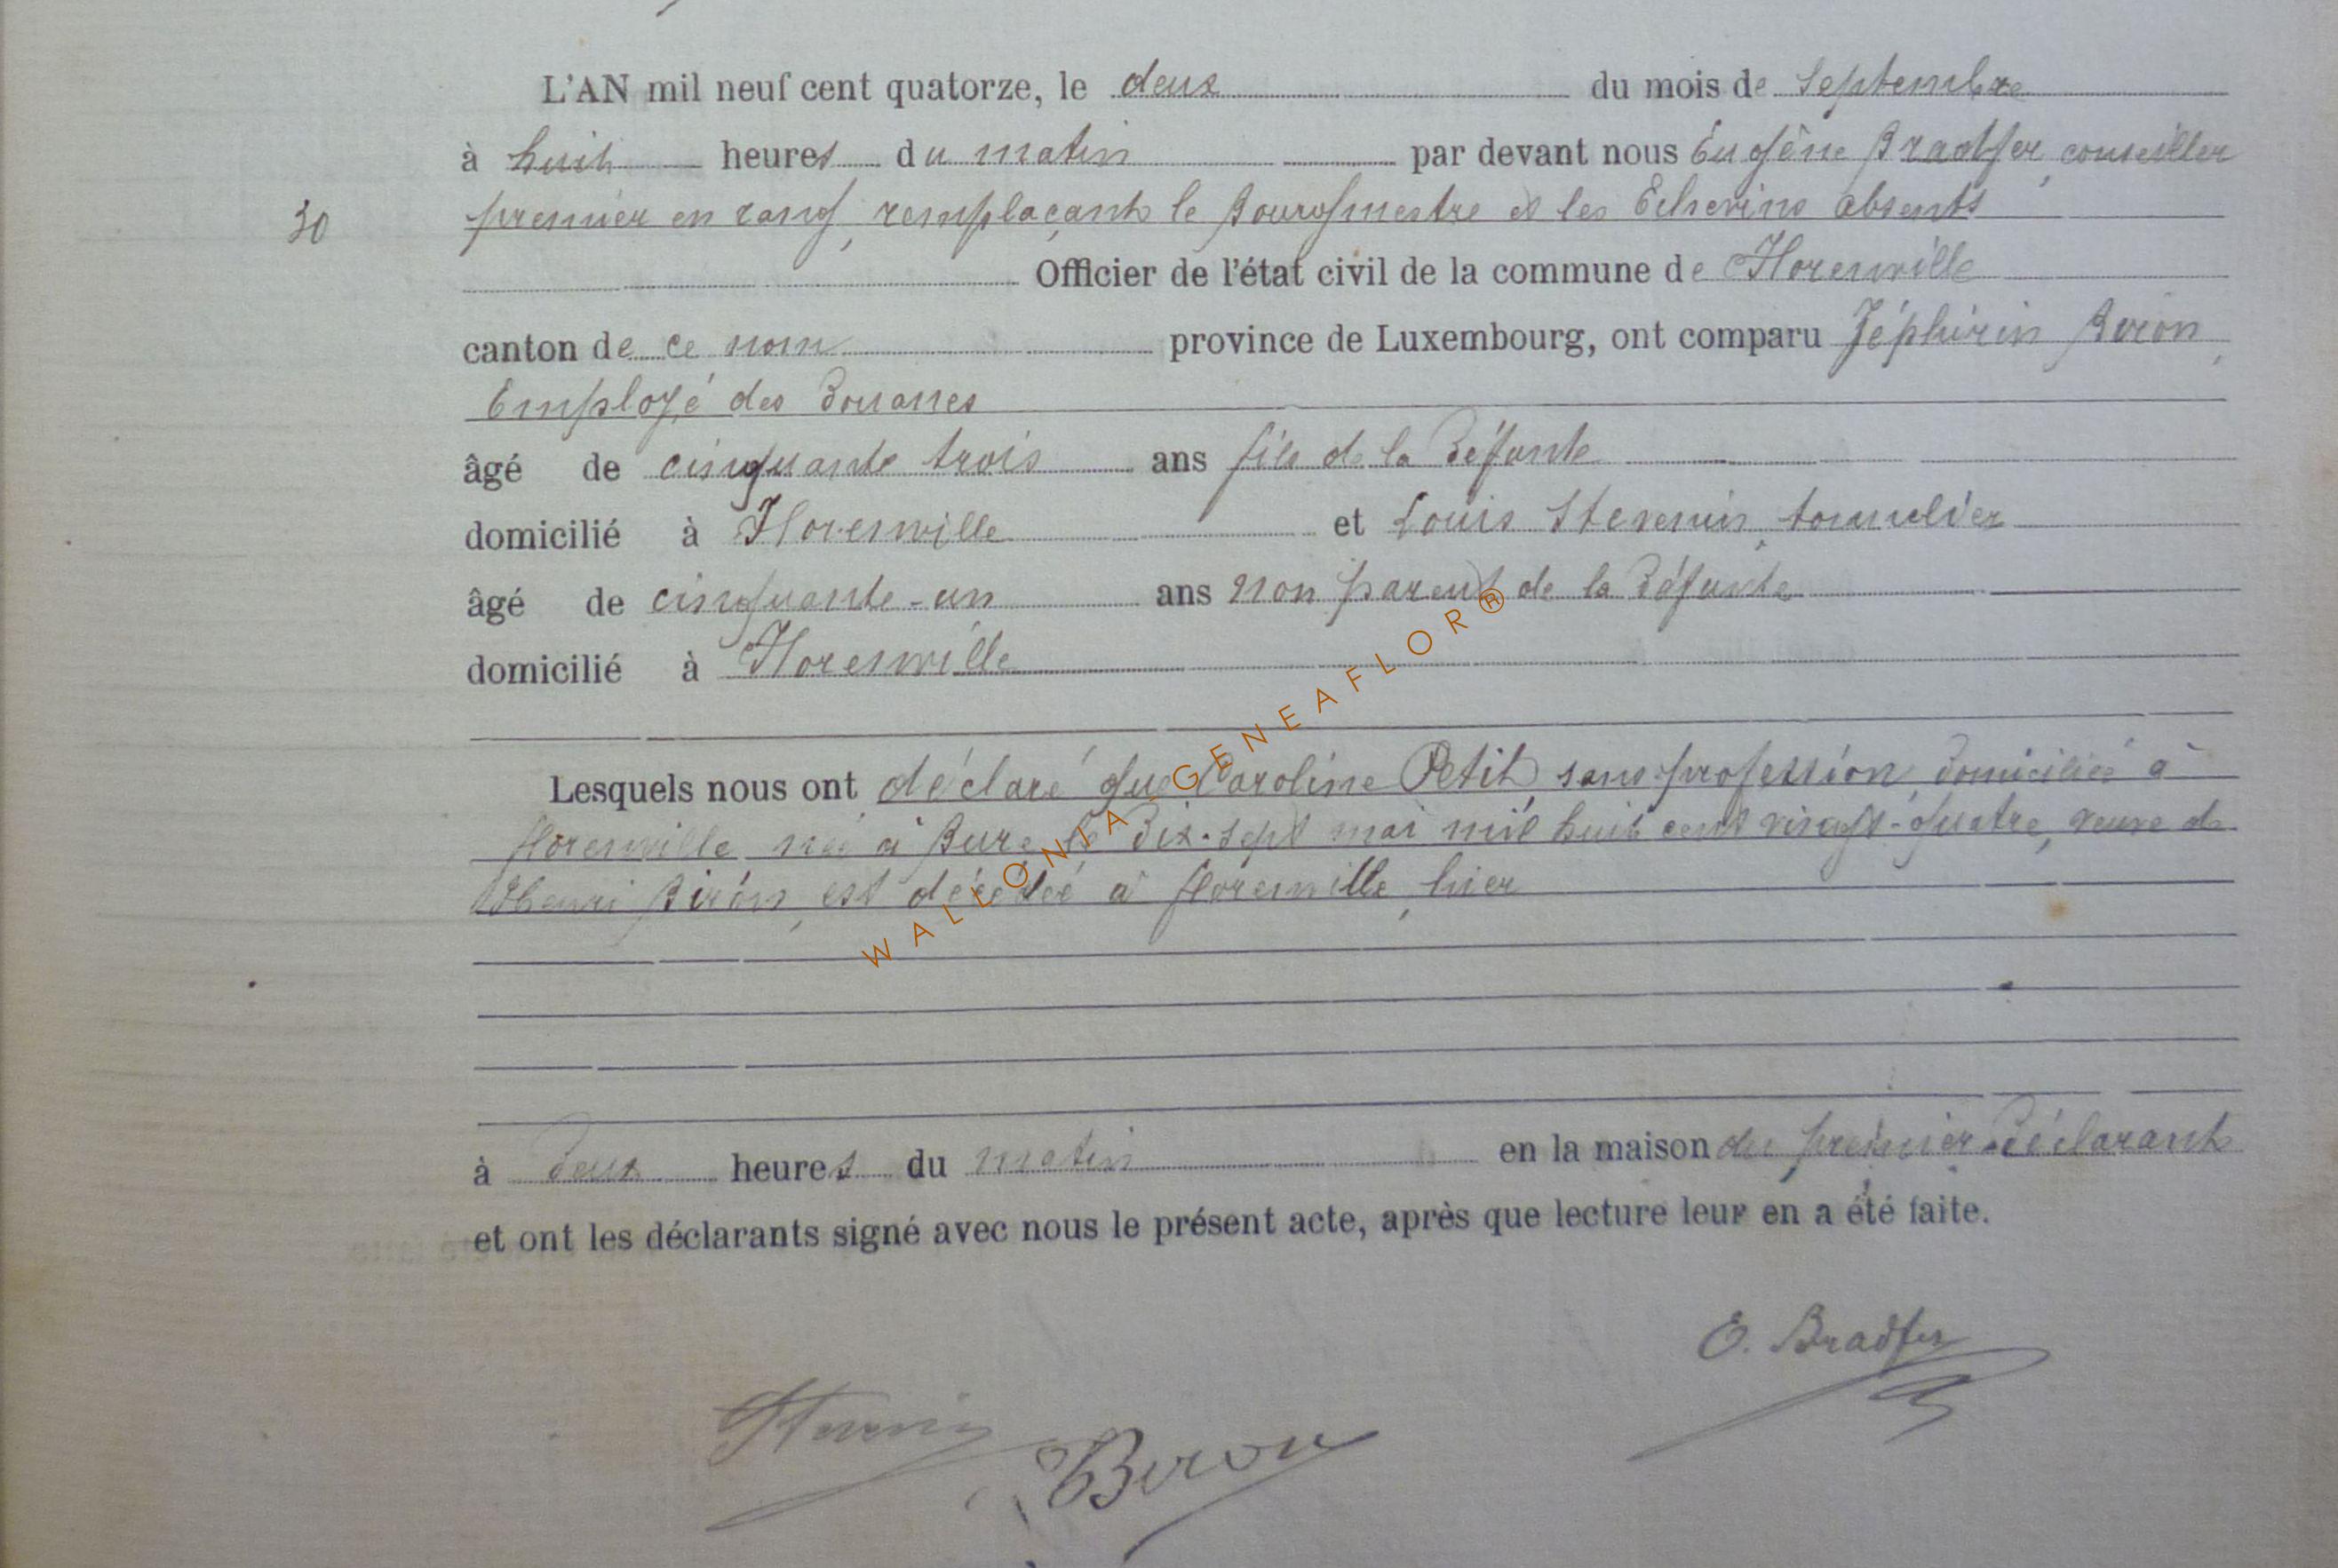 L'AN mil neuf cent quatorze, le deux du mois de Septembre
à huit heures du matin par devant nous Eugène Bradfer, conseiller
30 premier en rang, remplaçant le Bourgmestre et les Echevins absents
Officier de l'état civil de la commune de Florenville
canton de ce nom province de Luxembourg, ont comparu Zéphirin Biron,
Employé des Douanes
âgé de cinquante trois ans fils de la Défunte
domicilié à Florenville et Louis Stevenin, tonnelier
âgé de cinquante-un ans non parent de la Défunte
domicilié à Florenville
Lesquels nous ont déclaré que Caroline Petit, sans profession, domiciliée à
florenville née à Bure le Dix-sept mai mil huit cent vingt-quatre, veuve de
Henri Biron, est décédée à florenville, hier
à deux heures du matin en la maison du premier Déclarant
et ont les déclarants signé avec nous le présent acte, après que lecture leur en a été faite.
E. Bradfer
Stevenin
Biron
WALLONIA GENEAFLOR®